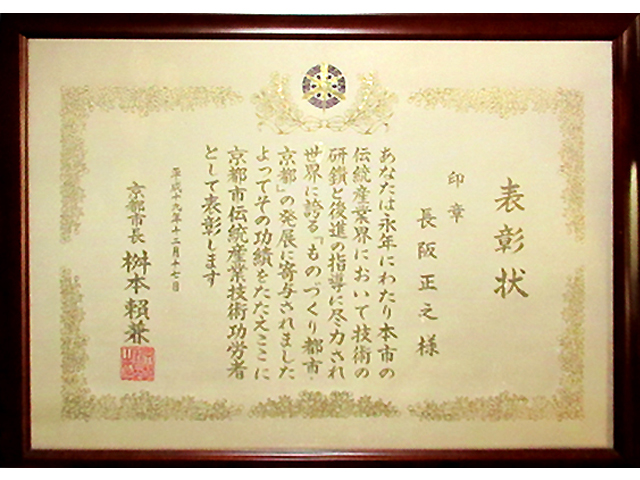 表彰状
印章
長阪正之様
あなたは永年にわたり本市の
伝統産業界において技術の
研鑽と後進の指導に尽力され
世界に誇る「ものづくり都市・
京都」の発展に寄与されました
よってその功績をたたえここに
京都市伝統産業技術功労者
として表彰します
平成十九年十二月十七日
京都市長 桝本賴兼